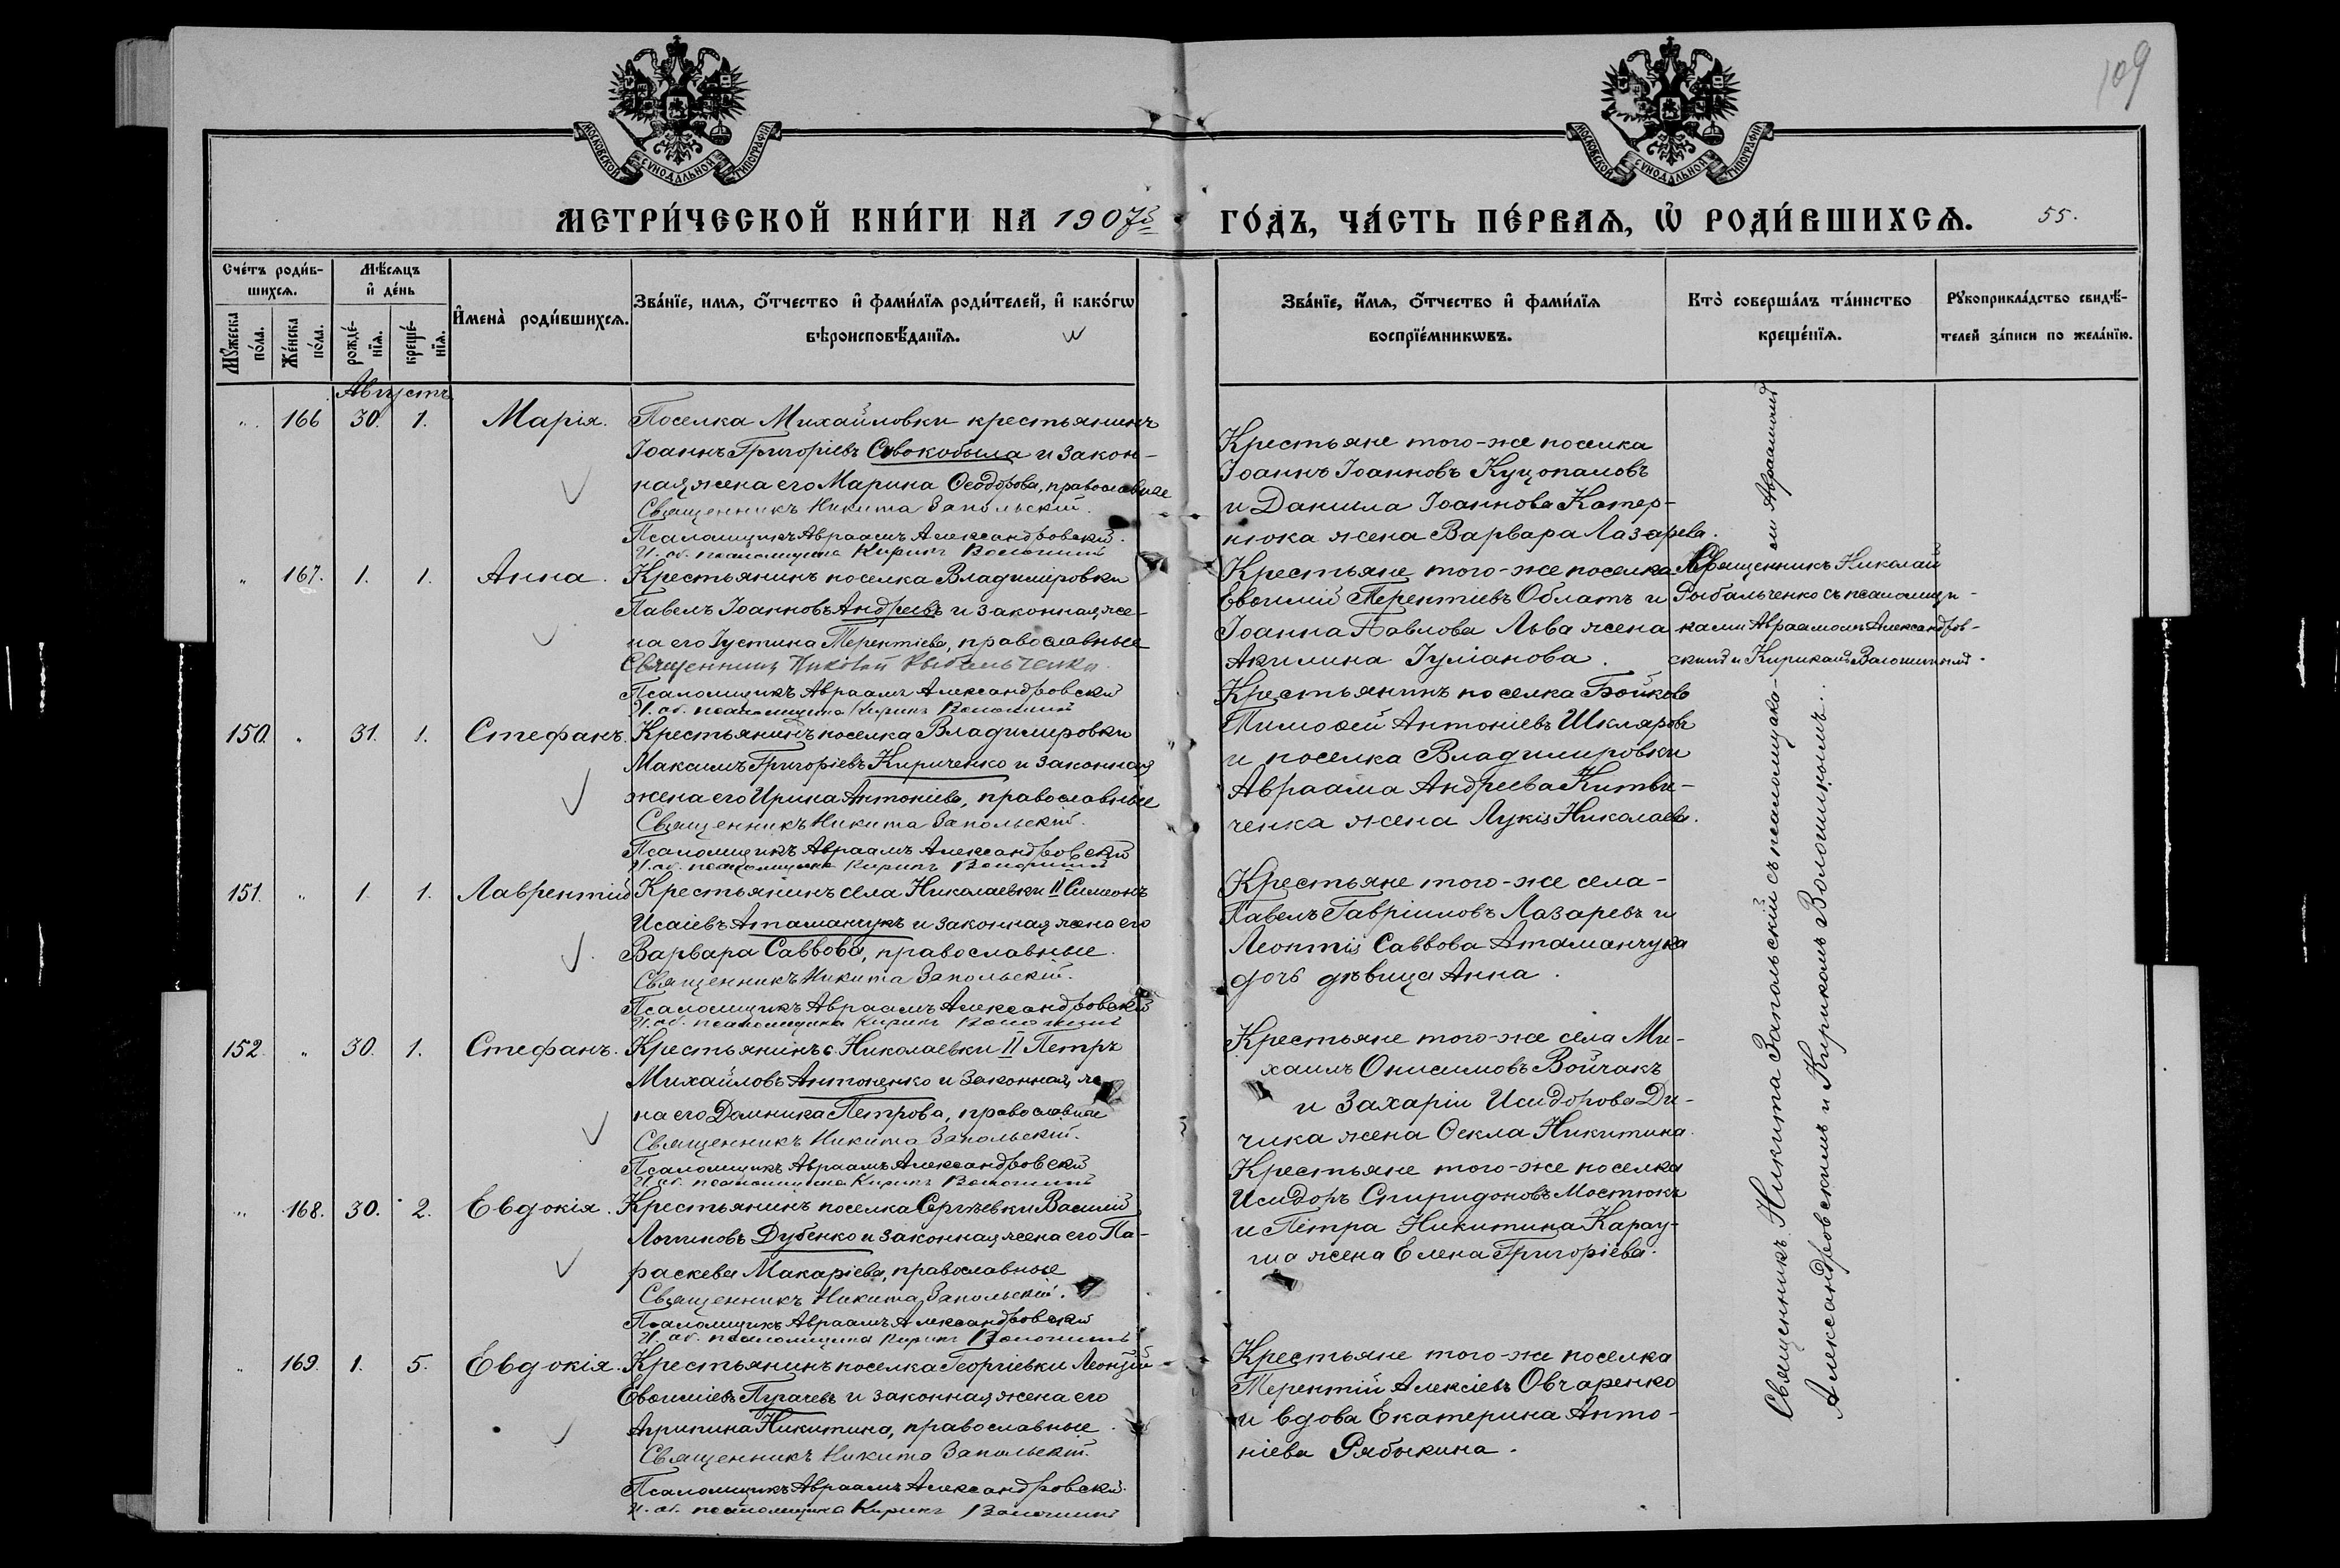 109
МОСКОВСКОЙ СѴНОДАЛЬНОЙ ТИПОГРАФІИ
МОСКОВСКОЙ СѴНОДАЛЬНОЙ ТИПОГРАФІИ
МЕТРИ́ЧЕСКОЙ КНИ́ГИ НА 1907й ГО́ДЪ, ЧА́СТЬ ПЕ́РВАѦ, Ѡ҆ РОДИ́ВШИХСѦ. 55.
Сче́тъ роди́в-
шихсѧ.
Мꙋ́жеска по́ла.
Же́нска по́ла.
Мѣ́сѧцъ
и҆ де́нь
рожде́-нїѧ.
креще́-нїѧ.
И҆мена̀ роди́вшихсѧ.
Зва́нїе, имѧ, ѻ҆́тчество и҆ фами́лїѧ роди́телей, и҆ како́гѡ
вѣроисповѣ́данїѧ.
Зва́нїе, и҆́мѧ, ѻ҆́тчество и҆ фами́лїѧ
воспрїе́мникѡвъ.
Кто̀ соверша́лъ та́инство
креще́нїѧ.
Рꙋкоприкла́дство свидѣ́-
телей за́писи по жела́нїю.
Августъ
" 166 30. 1. Марія. Поселка Михайловки крестьянинъ
Іоаннъ Григоріевъ Сивокобыла и закон-
ная жена его Марина Ѳеодорова, православные
Священникъ Никита Запольскій.
Псаломщикъ Авраамъ Александровскій.
И. об. псаломщика Кирикъ Волошинъ
Крестьяне того-же поселка
Іоаннъ Іоанновъ Куцопаловъ
и Данила Іоаннова Катер-
нюка жена Варвара Лазарева.
" 167. 1. 1. Анна. Крестьянинъ поселка Владиміровки
Павелъ Іоанновъ Андреевъ и законная же-
на его Іустина Терентіева, православные
Священникъ Николай Рыбальченко.
Псаломщикъ Авраамъ Александровскій
И. об. псаломщика Кирикъ Волошинъ
Крестьяне того-же поселка
Евѳимій Терентіевъ Облатъ и
Іоанна Павлова Льва жена
Акилина Іуліанова.
Священникъ Николай
Рыбальченко съ псаломщи-
ками Авраамомъ Александров-
скимъ и Кирикомъ Волошинымъ.
150. " 31. 1. Стефанъ. Крестьянинъ поселка Владиміровки
Максимъ Григоріевъ Кириченко и законная
жена его Ирина Антоніева, православные
Священникъ Никита Запольскій.
Псаломщикъ Авраамъ Александровскій
И. об. псаломщика Кирикъ Волошинъ
Крестьянинъ поселка Бойково
Тимоѳей Антоніевъ Шкляровъ
и поселка Владиміровки
Авраама Андреева Китви-
ченка жена Лукія Николаева.
151. " 1. 1. Лаврентій Крестьянинъ села Николаевки II Симеонъ
Исаіевъ Атаманчукъ и законная жена его
Варвара Саввова, православные.
Священникъ Никита Запольскій.
Псаломщикъ Авраамъ Александровскій
И. об. псаломщика Кирикъ Волошинъ
Крестьяне того-же села
Павелъ Гавріиловъ Лазаревъ и
Леонтія Саввова Атаманчука
дочь дѣвица Анна.
152. " 30. 1. Стефанъ. Крестьянинъ с. Николаевки II Петръ
Михайловъ Антоненко и законная же-
на его Домника Петрова, православные
Священникъ Никита Запольскій.
Псаломщикъ Авраамъ Александровскій
И. об. псаломщика Кирикъ Волошинъ
Крестьяне того-же села Ми-
хаилъ Онисимовъ Войчакъ
и Захаріи Исидорова Ди-
чика жена Ѳекла Никитина.
" 168. 30. 2. Евдокія. Крестьянинъ поселка Сергѣевки Василій
Логиновъ Дубенко и законная жена его Па-
раскева Макаріева, православные
Священникъ Никита Запольскій.
Псаломщикъ Авраамъ Александровскій
И. об. псаломщика Кирикъ Волошинъ
Крестьяне того-же поселка
Исидоръ Спиридоновъ Мостюкъ
и Петра Никитина Карау-
ша жена Елена Григоріева.
" 169. 1. 5. Евдокія. Крестьянинъ поселка Георгіевки Леонтій
Евѳиміевъ Пугачевъ и законная жена его
Агрипина Никитина, православные.
Священникъ Никита Запольскій.
Псаломщикъ Авраамъ Александровскій.
И. об. псаломщика Кирикъ Волошинъ
Крестьяне того-же поселка
Терентій Алексіевъ Овчаренко
и вдова Екатерина Анто-
ніева Рябыкина.
Священникъ Никита Запольскій съ псаломщика-ми Авраамомъ
Александровскимъ и Кирикомъ Волошинымъ.